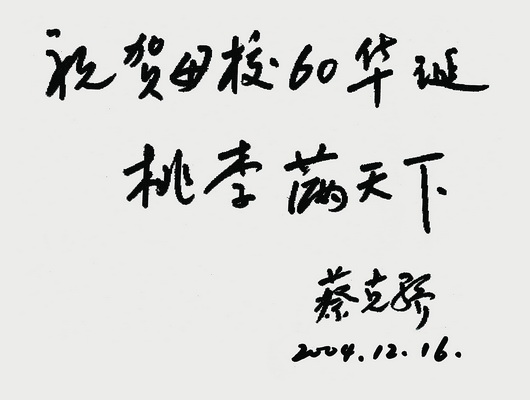 祝贺母校60华诞
桃李满天下
蔡克骄
2004.12.16.